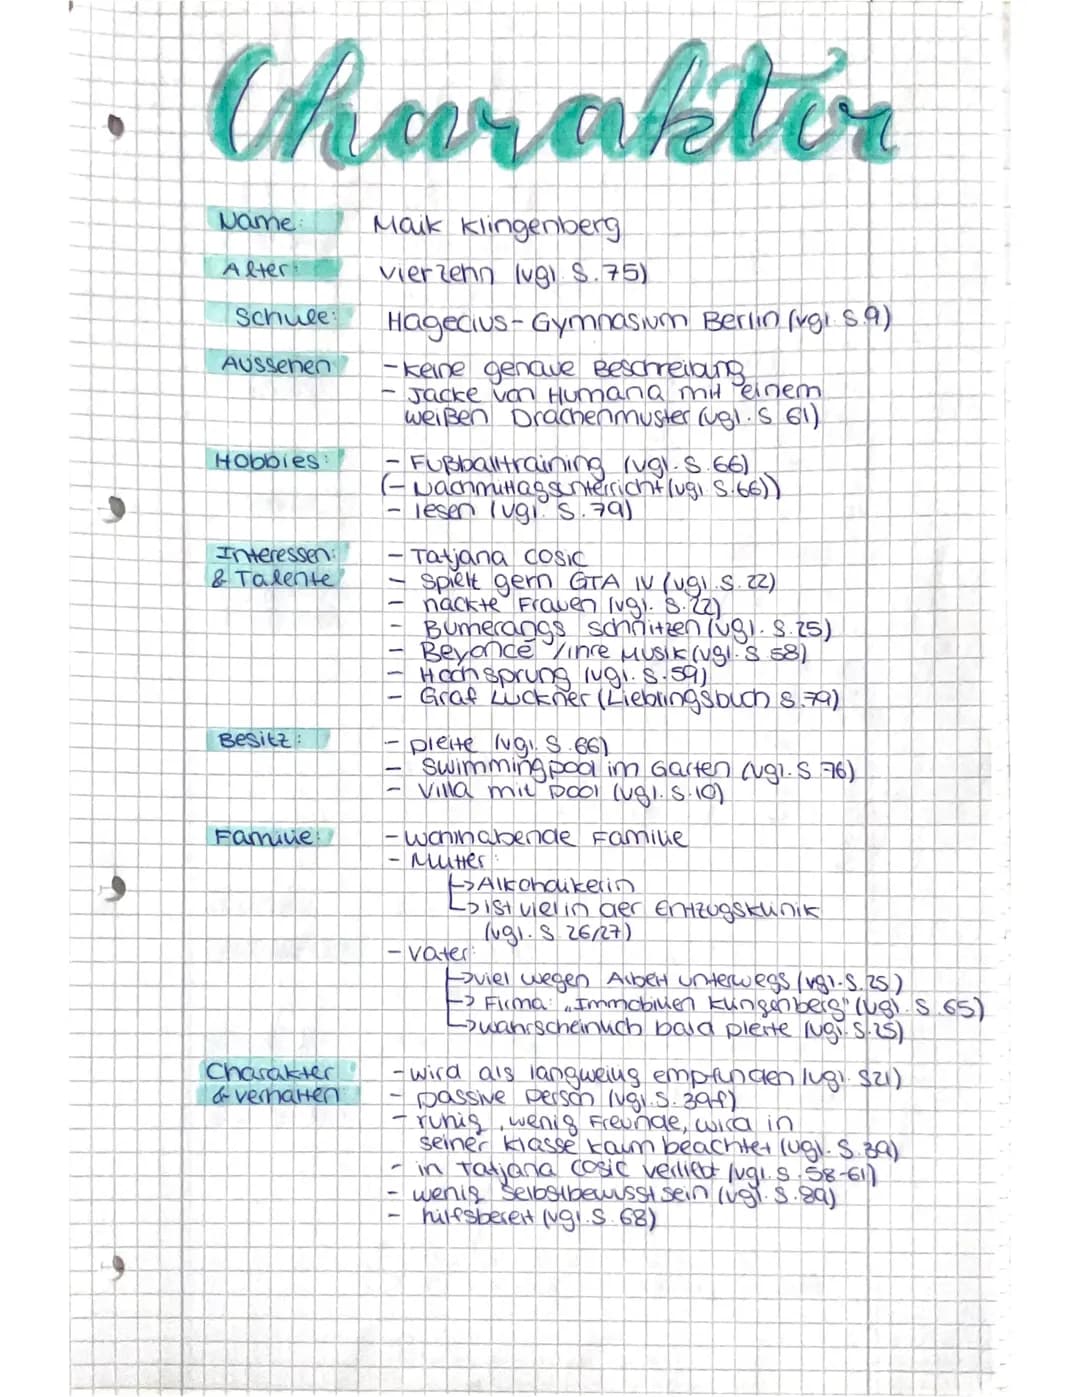 Charakter
Name: Maik Klingenberg
Alter: vierzehn (vgl. S.75)
Schule: Hagecius-Gymnasium Berlin (vgl S.9)
Aussehen - keine genaue Beschreibung
- Jacke von Humana mit einem
weißen Drachenmuster (vgl. S 61)
Hobbies: - Fußballtraining (vgl. S.66)
(- Nachmittagsunterricht (vgl S.66))
- lesen (vgl. S.79)
Interessen: - Tatjana Cosic
& Talente - spielt gern GTA IV (vgl. S.22)
- nackte Frauen (vgl. S.22)
- Bumerangs schnitzen (vgl. S.25)
- Beyoncé / ihre Musik (vgl. S 58)
- Hochsprung (vgl. S.59)
- Graf Luckner (Lieblingsbuch S.79)
Besitz: - pleite (vgl. S.66)
- Swimmingpool im Garten (vgl. S 76)
- Villa mit Pool (vgl. S.10)
Familie: - wohlhabende Familie
- Mutter:
↳ Alkoholikerin
↳ ist viel in der Entzugsklinik
(vgl. S 26/27)
- Vater:
↳ viel wegen Arbeit unterwegs (vgl. S.25)
↳ Firma: „Immobilien Klingenberg" (vgl. S.65)
↳ wahrscheinlich bald pleite (vgl. S.25)
Charakter - wird als langweilig empfunden (vgl. S21)
& verhalten - passive Person (vgl. S.39f)
- ruhig, wenig Freunde, wird in
seiner Klasse kaum beachtet (vgl. S.39)
- in Tatjana Cosic verliebt (vgl. S.58-61)
- wenig Selbstbewusstsein (vgl. S.89)
- hilfsbereit (vgl. S.68)